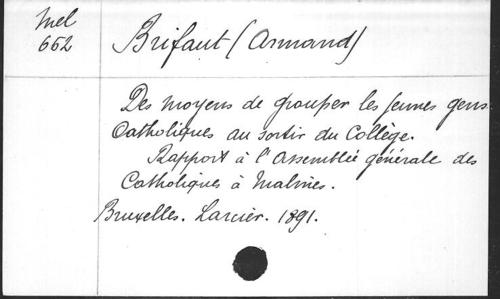 Mel
662
Brifaut (Armand)
Des moyens de grouper les jeunes gens
Catholiques au sortir du Collège.
Rapport à l'Assemblée générale des
Catholiques à Malines.
Bruxelles. Larcier. 1891.